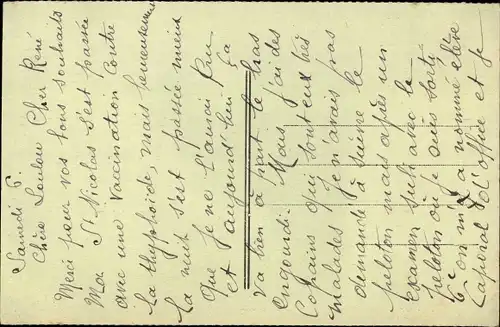 Samedi 6.
Chère Loulou Cher René
Merci pour vos bons souhaits
Ma St Nicolas s'est passée
avec une vaccination contre
la thyphoïde, mais heureusement
la nuit s'est passée mieux
que je ne l'aurais cru
et aujourd'hui ça
va bien à part le bras
engourdi. Mais j'ai des
copains qui sont eux très
malades. Je n'avais pas
demandé à suivre le
peloton mais après un
examen subi avec le
peloton où je suis sorti
6e on m'a nommé élève
Caporal d'office et je